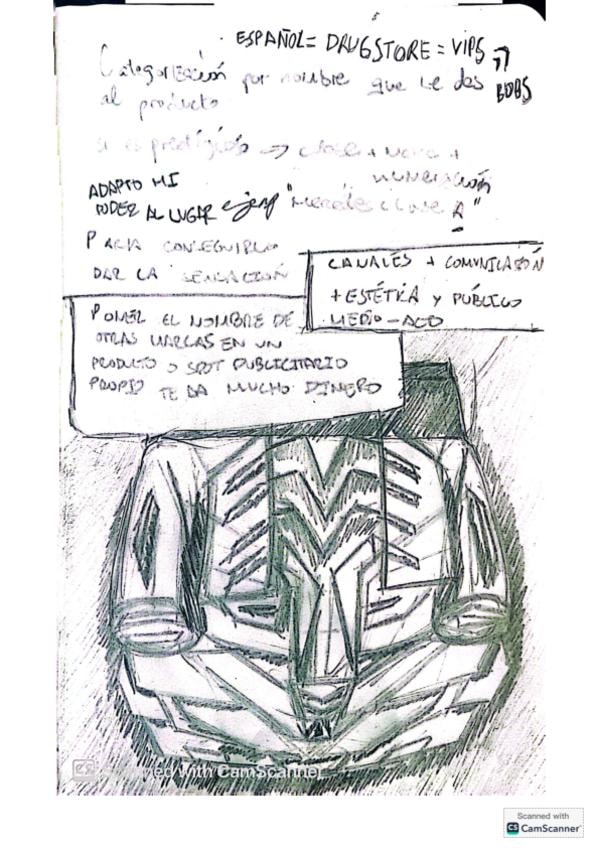 ESPAÑOL = DRUGSTORE = VIPS
BOBS
Categorización por nombre que le des
al producto
ADAPTO MI
PODER AL LUGAR ejemp "Mercedes clase A"
PARA CONSEGUIRLO
DAR LA SENSACIÓN
CANALES + COMUNICACIÓN
+ ESTÉTICA Y PÚBLICO
MEDIO-ALTO
PONER EL NOMBRE DE
OTRAS MARCAS EN UN
PRODUCTO O SPOT PUBLICITARIO
PROPIO TE DA MUCHO DINERO
Scanned with CamScanner
Scanned with
CS CamScanner